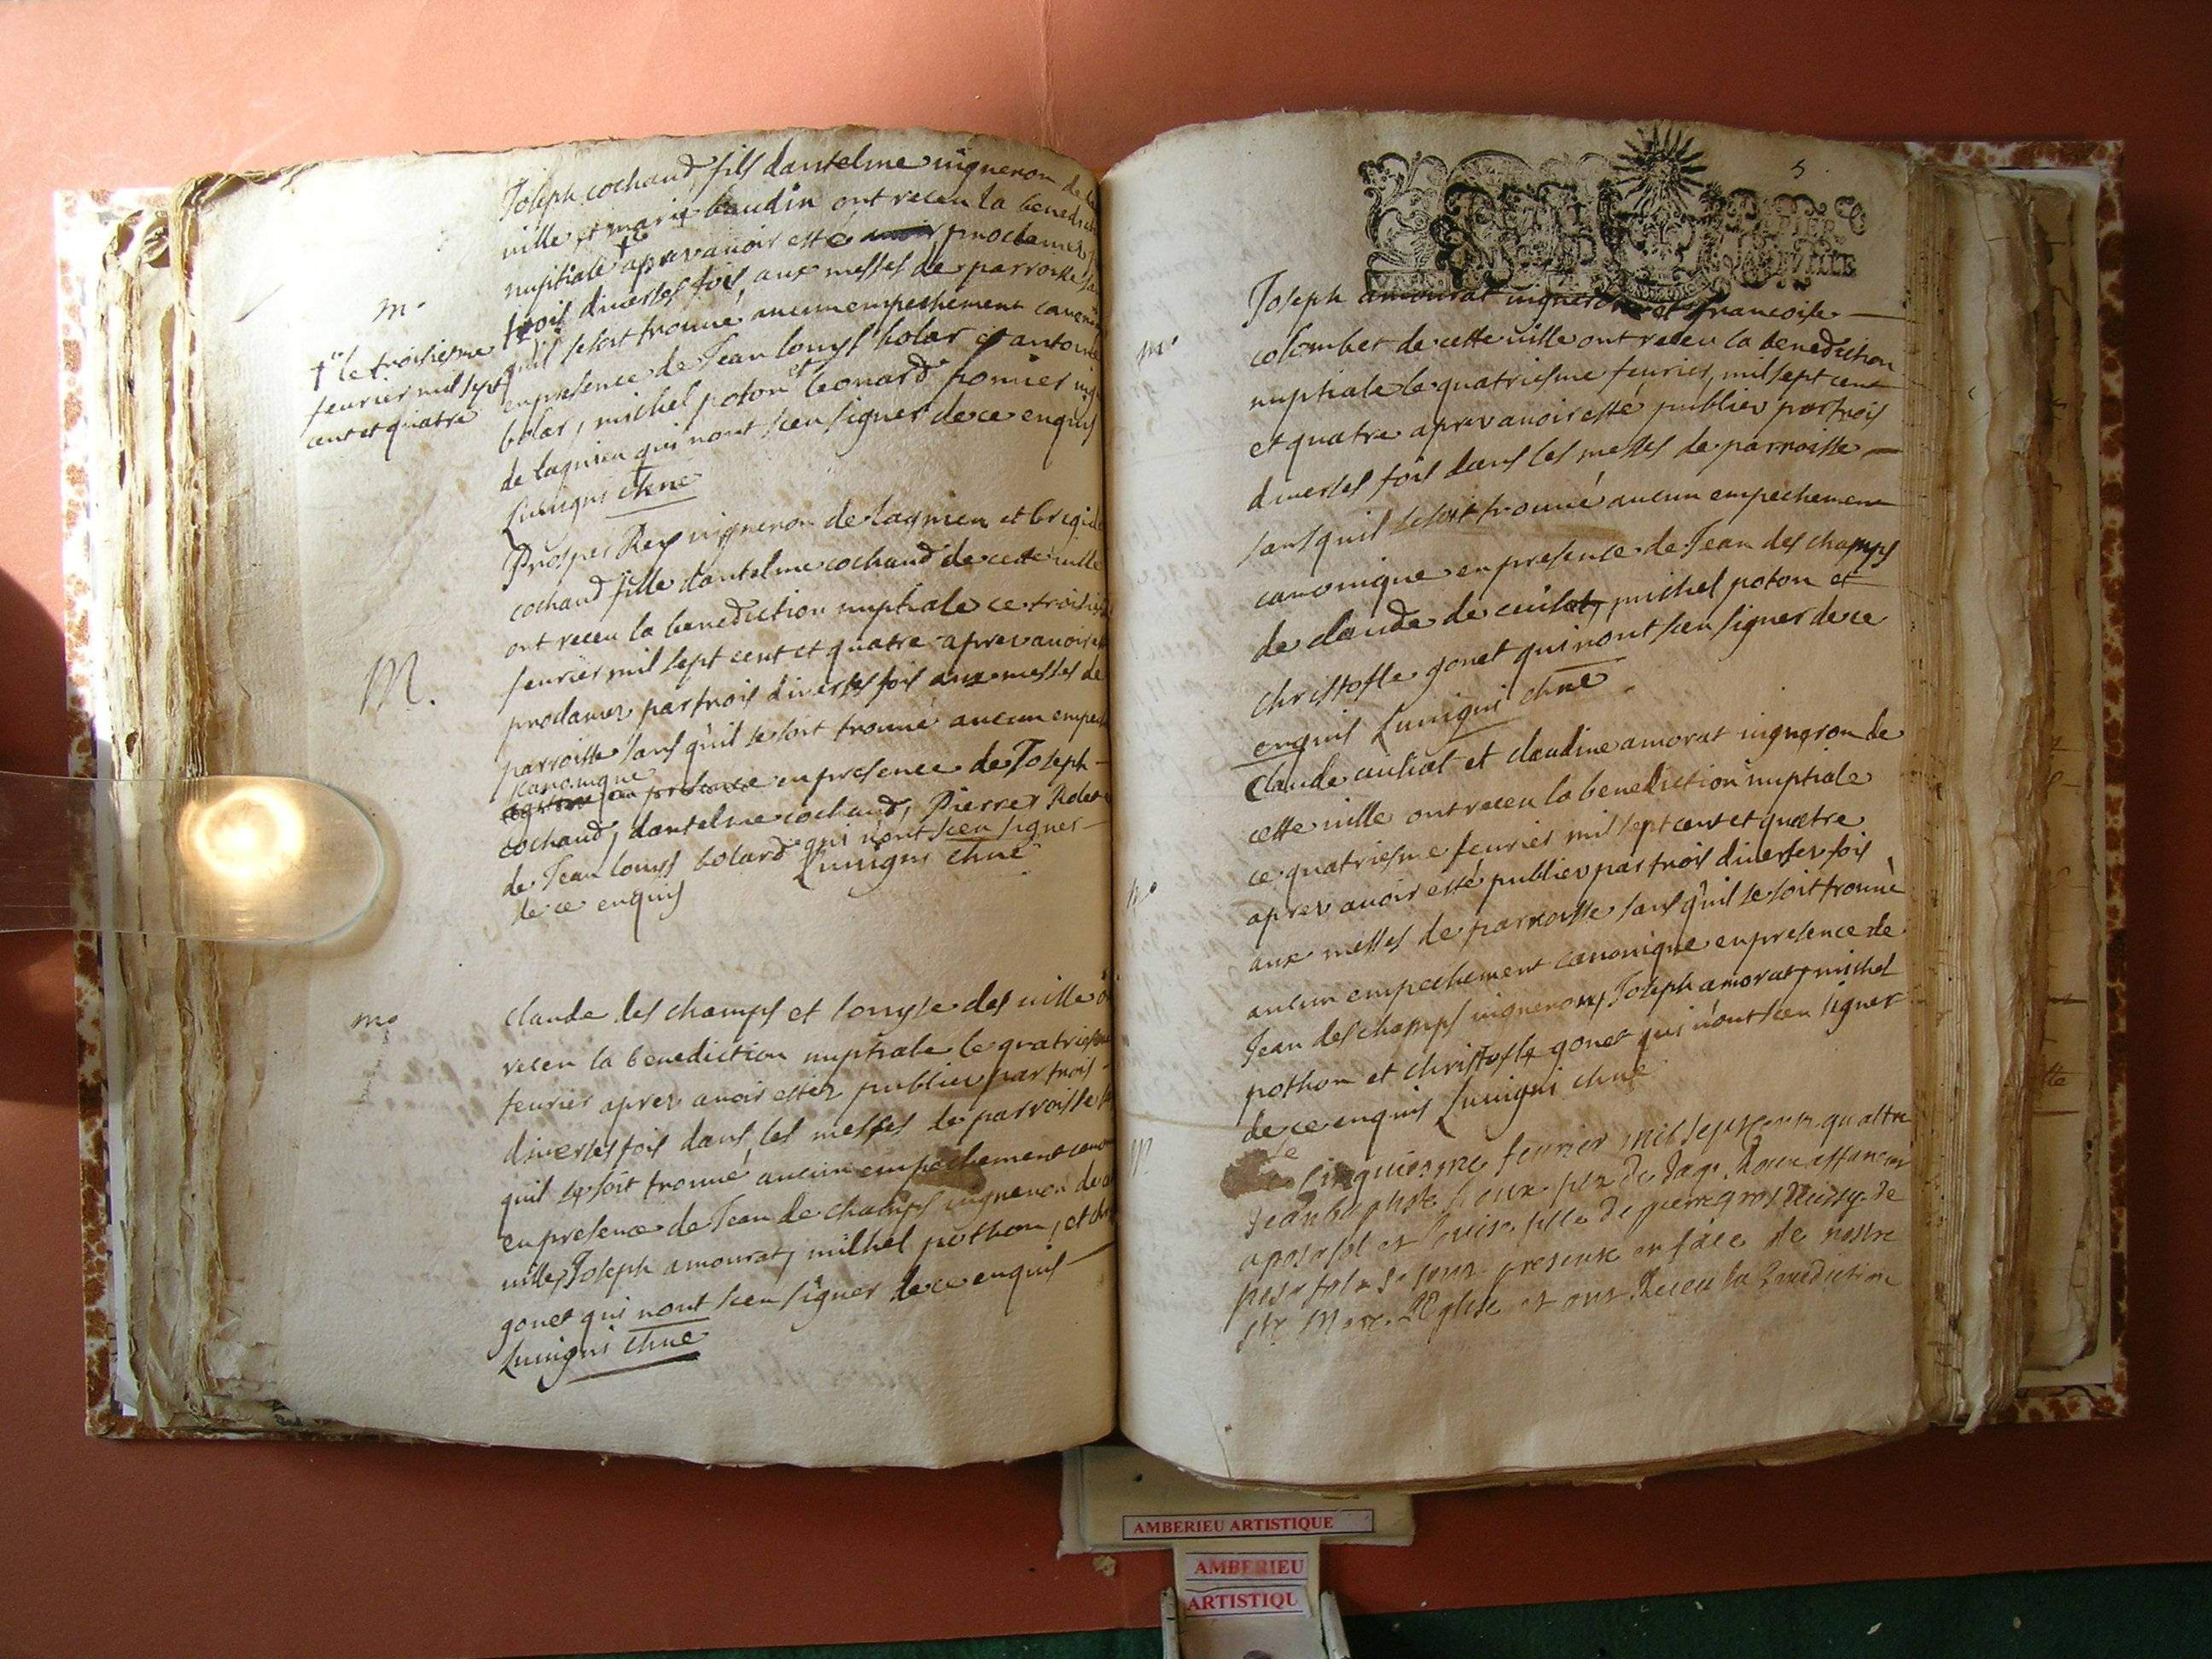 Joseph cochand fils dantelme uigneron de la
uille et marie baudin ont receu la benedicti
nuptiale † aprez auoir esté proclamez
trois diuerses fois aux messes de parroisse sa
quil se soit trouué aucun empechement canoni
en presence de Jean louys bolar et antoine
bolar, michel poton et leonard ponier uig
de lagnieu qui nont sceu signer de ce enquis
Luuigni chne
m.
† le troisiesme
feurier mil sept
cent et quatre
Prosper Rey uigneron de lagnieu et brigide
cochand fille dantelme cochand de cette uille
ont receu la benediction nuptiale ce troisies
feurier mil sept cent et quatre aprez auoir est
proclamez par trois diuerses fois aux messes de
parroisse sans quil se soit trouué aucun empech
canonique
en presence de Joseph
cochand, dantelme cochand, Pierre
de Jean louys bolard qui nont sceu signer
de ce enquis Luuigni chne
M.
claude des champs et louyse des uille on
receu la benediction nuptiale le quatriesme
feurier aprez auoir estez publiez par trois
diuerses fois dans les messes de parroisse s
quil se soit trouué aucun empechement cano
en presence de Jean de champs uigneron de
uille, Joseph amourat, milhel pothon, et ch
gonet qui nont sceu signer de ce enquis
Luuigni chne
mo
5
Joseph amourat uigneron et francoise
colombet de cette uille ont receu la benediction
nuptiale le quatriesme feurier, mil sept cent
et quatre aprez auoir esté publiez par trois
diuerses fois dans les messes de parroisse
sans quil se soit trouué aucun empechement
canonique en presence de Jean des champs
de claude de michel poton et
christofle gonet qui nont sceu signer de ce
enquis Luuigni chne
mo
Claude et claudine amorat uigneron de
cette uille ont receu la benediction nuptiale
ce quatriesme feurier mil sept cent et quatre
aprez auoir esté publiez par trois diuerses fois
aux messes de parroisse sans quil se soit trouué
aucun empechement canonique en presence de
Jean des champs uigneron, Joseph amorat, michel
pothon et christofle gonet qui nont sceu signer
de ce enquis Luuigni chne
le cinquiesme feurier mil sept cent quattre
Jean baptiste Roux fils de Roux affaneur
et fille de pierre gros de
se sont presenté en face de nostre
ste Mere L'Eglise et ont Receu la Benediction
AMBERIEU ARTISTIQUE
AMBERIEU
ARTISTIQU